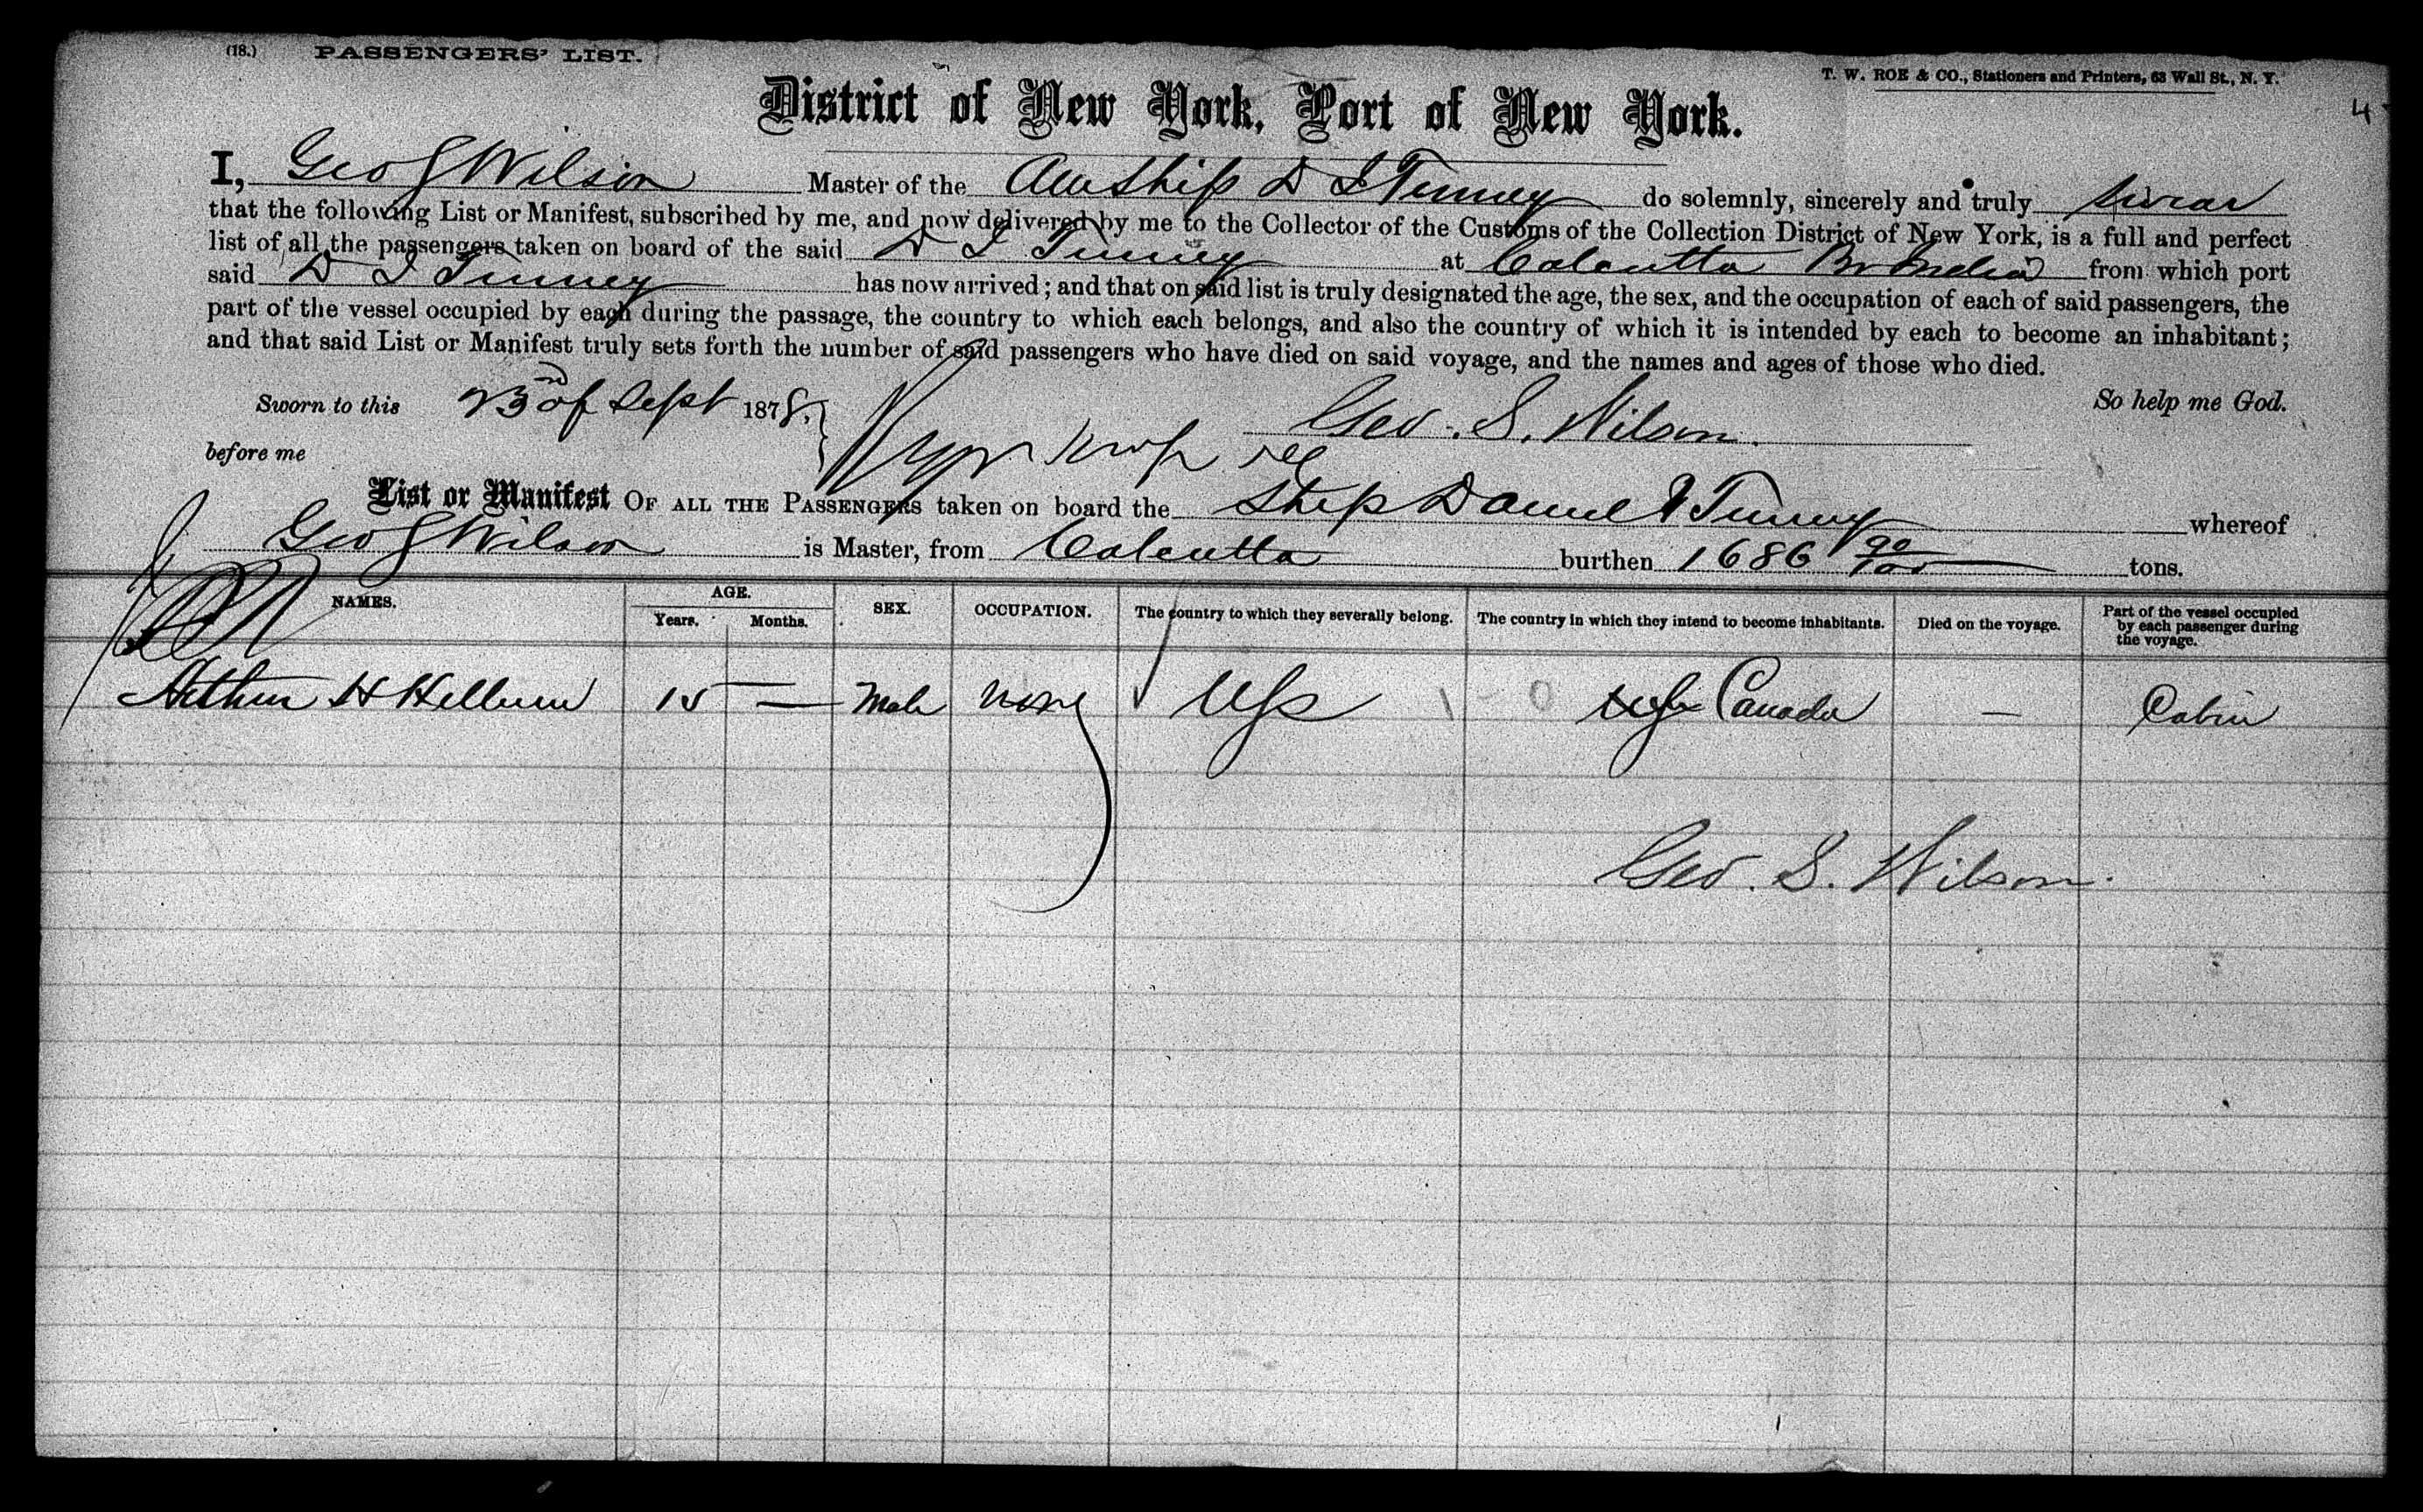 (18.) PASSENGERS' LIST.
T. W. ROE & CO., Stationers and Printers, 63 Wall St., N. Y.
4
District of New York, Port of New York.
I, Geo S Wilson Master of the Am Ship D I Tenney do solemnly, sincerely and truly swear
that the following List or Manifest, subscribed by me, and now delivered by me to the Collector of the Customs of the Collection District of New York, is a full and perfect
list of all the passengers taken on board of the said D I Tenney at Calcutta Br India from which port
said D I Tenney has now arrived; and that on said list is truly designated the age, the sex, and the occupation of each of said passengers, the
part of the vessel occupied by each during the passage, the country to which each belongs, and also the country of which it is intended by each to become an inhabitant;
and that said List or Manifest truly sets forth the number of said passengers who have died on said voyage, and the names and ages of those who died.
Sworn to this 23rd of Sept 1878. So help me God.
Geo. S. Wilson.
before me
List or Manifest OF ALL THE PASSENGERS taken on board the Ship Daniel I Tenney whereof
Geo S Wilson is Master, from Calcutta burthen 1686 90/100 tons.
NAMES. AGE. Years. Months. SEX. OCCUPATION. The country to which they severally belong. The country in which they intend to become inhabitants. Died on the voyage. Part of the vessel occupied by each passenger during the voyage.
Arthur H Kellum 15 — Male None US 1 - 0 Canada — Cabin
Geo. S. Wilson.